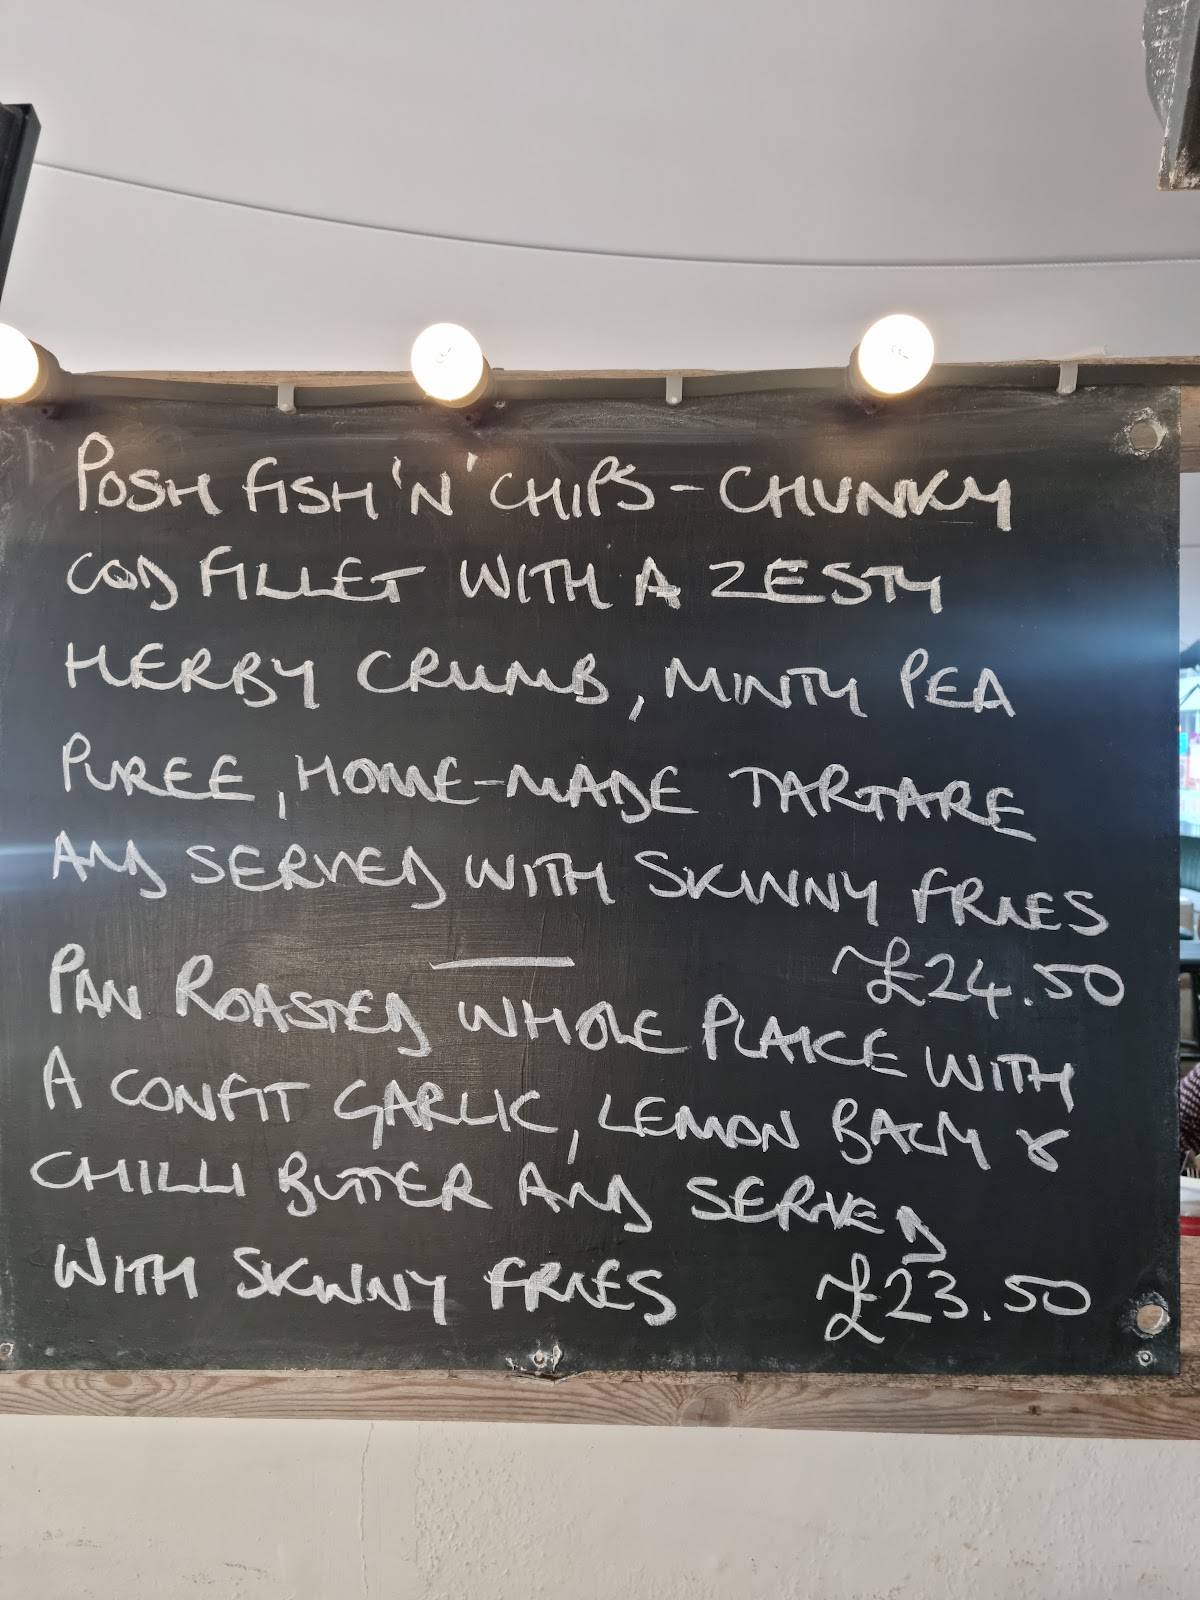 POSH FISH 'N' CHIPS - CHUNKY
COD FILLET WITH A ZESTY
HERBY CRUMB, MINTY PEA
PUREE, HOME-MADE TARTARE
AND SERVED WITH SKINNY FRIES
£24.50
PAN ROASTED WHOLE PLAICE WITH
A CONFIT GARLIC, LEMON BALM &
CHILLI BUTTER AND SERVED
WITH SKINNY FRIES £23.50